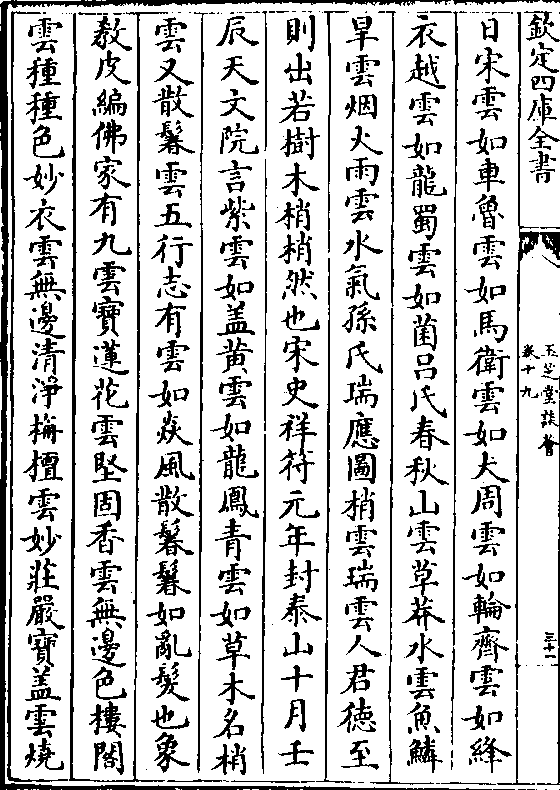 欽定四庫全書
玉芝堂談薈
卷十九
三十一
日宋雲如車魯雲如馬衛雲如犬周雲如輪齊雲如絳
衣越雲如龍蜀雲如菌吕氏春秋山雲草莽水雲魚鱗
旱雲烟火雨雲水氣孫氏瑞應圖梢雲瑞雲人君徳至
則出若樹木梢梢然也宋史祥符元年封泰山十月壬
辰天文院言紫雲如盖黄雲如龍鳳青雲如草木名梢
雲又散鬊雲五行志有雲如焱風散鬊鬊如亂髮也象
教皮編佛家有九雲寶蓮花雲堅固香雲無邊色樓閣
雲種種色妙衣雲無邊清淨栴檀雲妙莊嚴寶盖雲燒